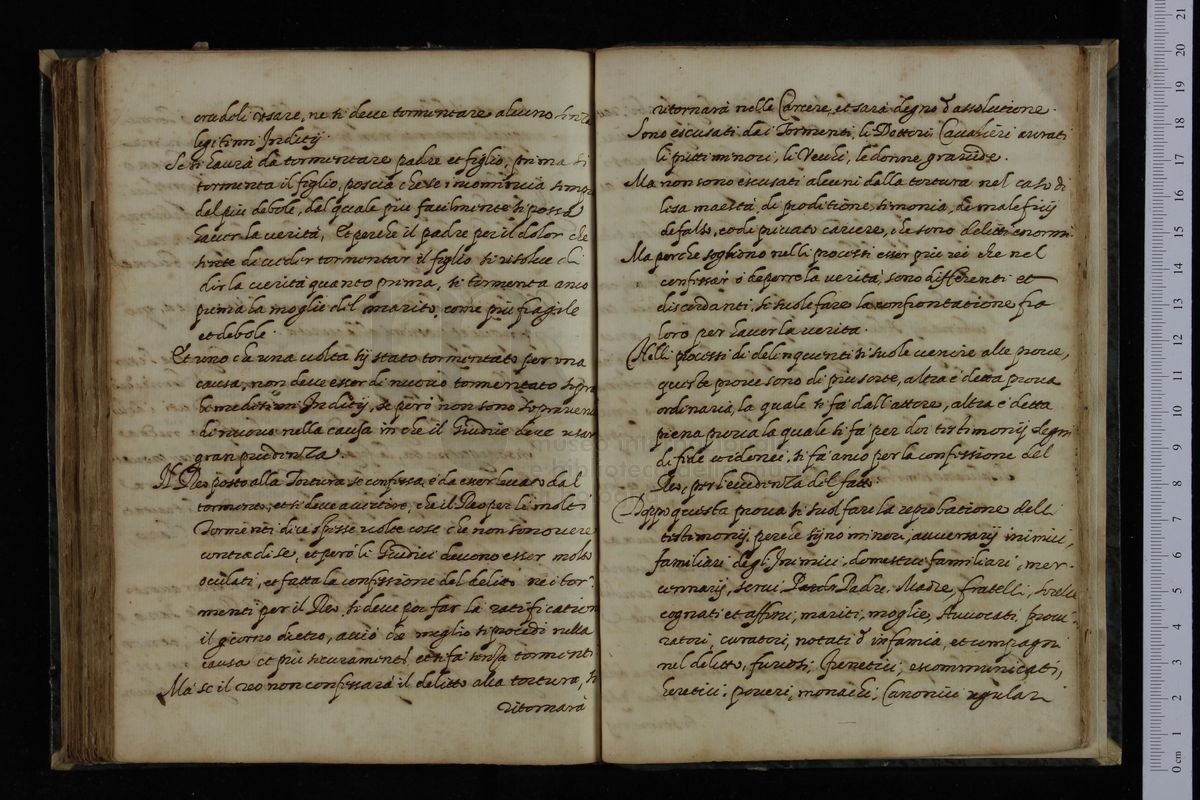 crudeli usare, ne si deve tormentare alcuno senza
legitimi Inditij.
Se si havrà da tormentare padre et figlio, prima si
tormenta il figlio, poscia che se incomincia sempre
dal piu debole, dal quale piu facilmente si possa
haver la verità, Et perche il padre per il dolor che
sente di veder tormentar il figlio si risolve di
dir la verità quanto prima, si tormenta anco
prima la moglie del marito, come piu fragile
et debole.
Et uno che una volta sij stato tormentato per una
causa, non deve esser di nuovo tormentato sopra
li medesimi Inditij, se però non sono sopravenuti
di nuovo nella causa in che il Giudice deve usar
gran prudenza.
Il Reo posto alla Tortura se confessa, è da esser levato dal
tormento, et si deve avertire, che il Reo per li molti
Tormenti dice spesse volte cose che non sono vere
contra di se, et però li Giudici devono esser molto
oculati, et fatta la confessione del delitto ne i tor-
menti per il Reo si deve poi far la ratification
il giorno dietro, acciò che meglio si procedi nella
causa et più sicuramente et si fa senza tormenti
Ma se il reo non confessarà il delitto alla tortura, si
ritornara
ritornarà nelle Carcere, et sarà degno d'assolutione.
Sono escusati dai Tormenti, li Dottori, Cavalieri aurati
li putti minori, li Vecchi, le donne gravide.
Ma non sono escusati alcuni dalla tortura nel caso di
lesa maestà, di proditione, simonia, de maleficij
de falso, et de privato carcere, che sono delitti enormi
Ma perche sogliono nelli processi esser piu rei che nel
confessar ò deporre la verità, sono differenti et
discordanti, si suole fare la confrontatione fra
loro per haver la verita.
Nelli processi di delinquenti si suole venire alle prove,
queste prove sono di piu sorte, altra è detta prova
ordinaria, la quale si fa dall'attore, altra è detta
piena prova la quale si fa per doi testimonij degni
di fide et idonei, si fa anco per la confessione del
Reo, per l'evidenza del fatto.
Doppo questa prova si suol fare la reprobatione delli
testimonij, perche sijno minori, adversarij inimici,
familiari degl'Inimici, domestici familiari, mer-
cennarij, servi Padre, Madre, fratelli, sorelle
cognati et affini, mariti, moglie, Avvocati, Procu-
ratori, curatori, notati d'infamia, et compagni
nel delitto, furiosi, frenetici, escommunicati,
heretici, poveri, monachi, Canonici regulari